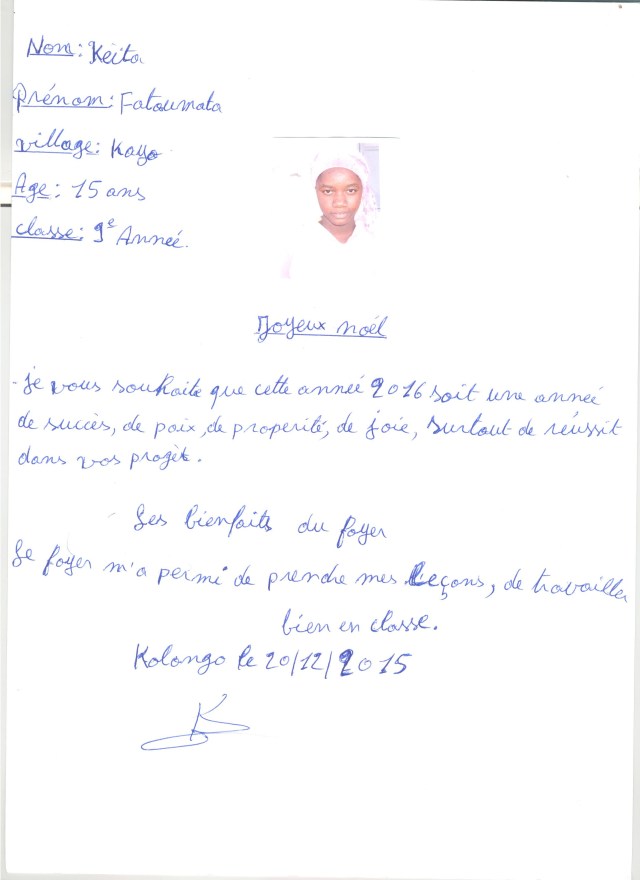 Nom: Keïta
Prénom: Fatoumata
village: Kayo
Age: 15 ans
classe: 9e Année.
Joyeux noël
- Je vous souhaite que cette année 2016 soit une année
de succès, de paix, de properité, de joie, surtout de réussit
dans vos progèt.
- Les bienfaits du foyer
Le foyer m'a permi de prendre mes Leçons, de travailler
bien en classe.
Kolongo le 20/12/2015